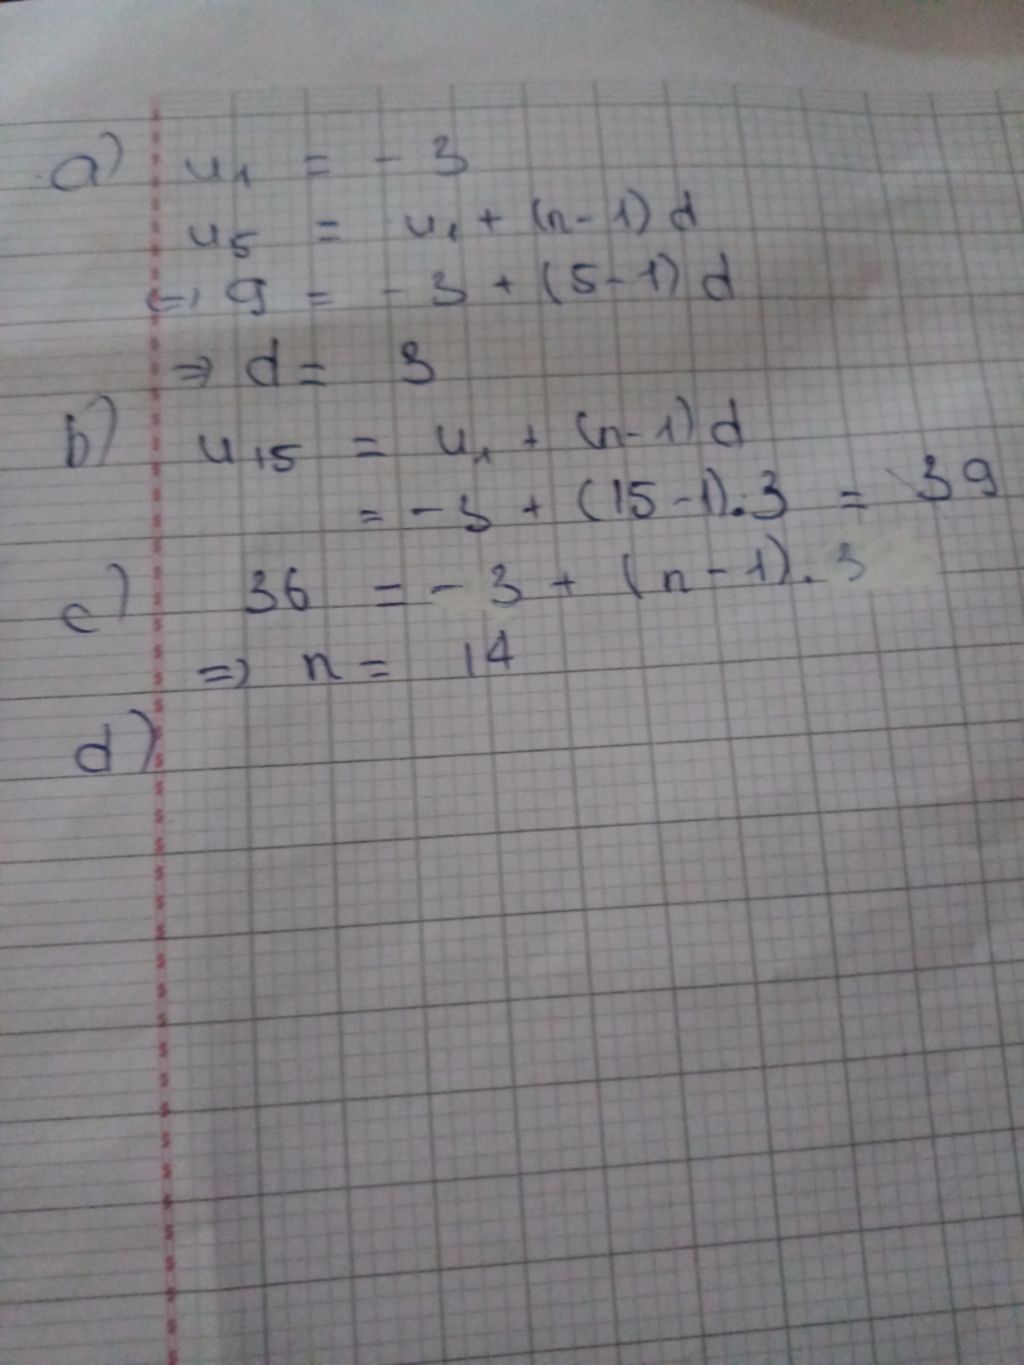 a) u₁ = - 3
u₅ = u₁ + (n-1) d
<=> 9 = - 3 + (5-1) d
=> d = 3
b) u₁₅ = u₁ + (n-1) d
= -3 + (15-1).3 = 39
c) 36 = - 3 + (n-1).3
=> n = 14
d)